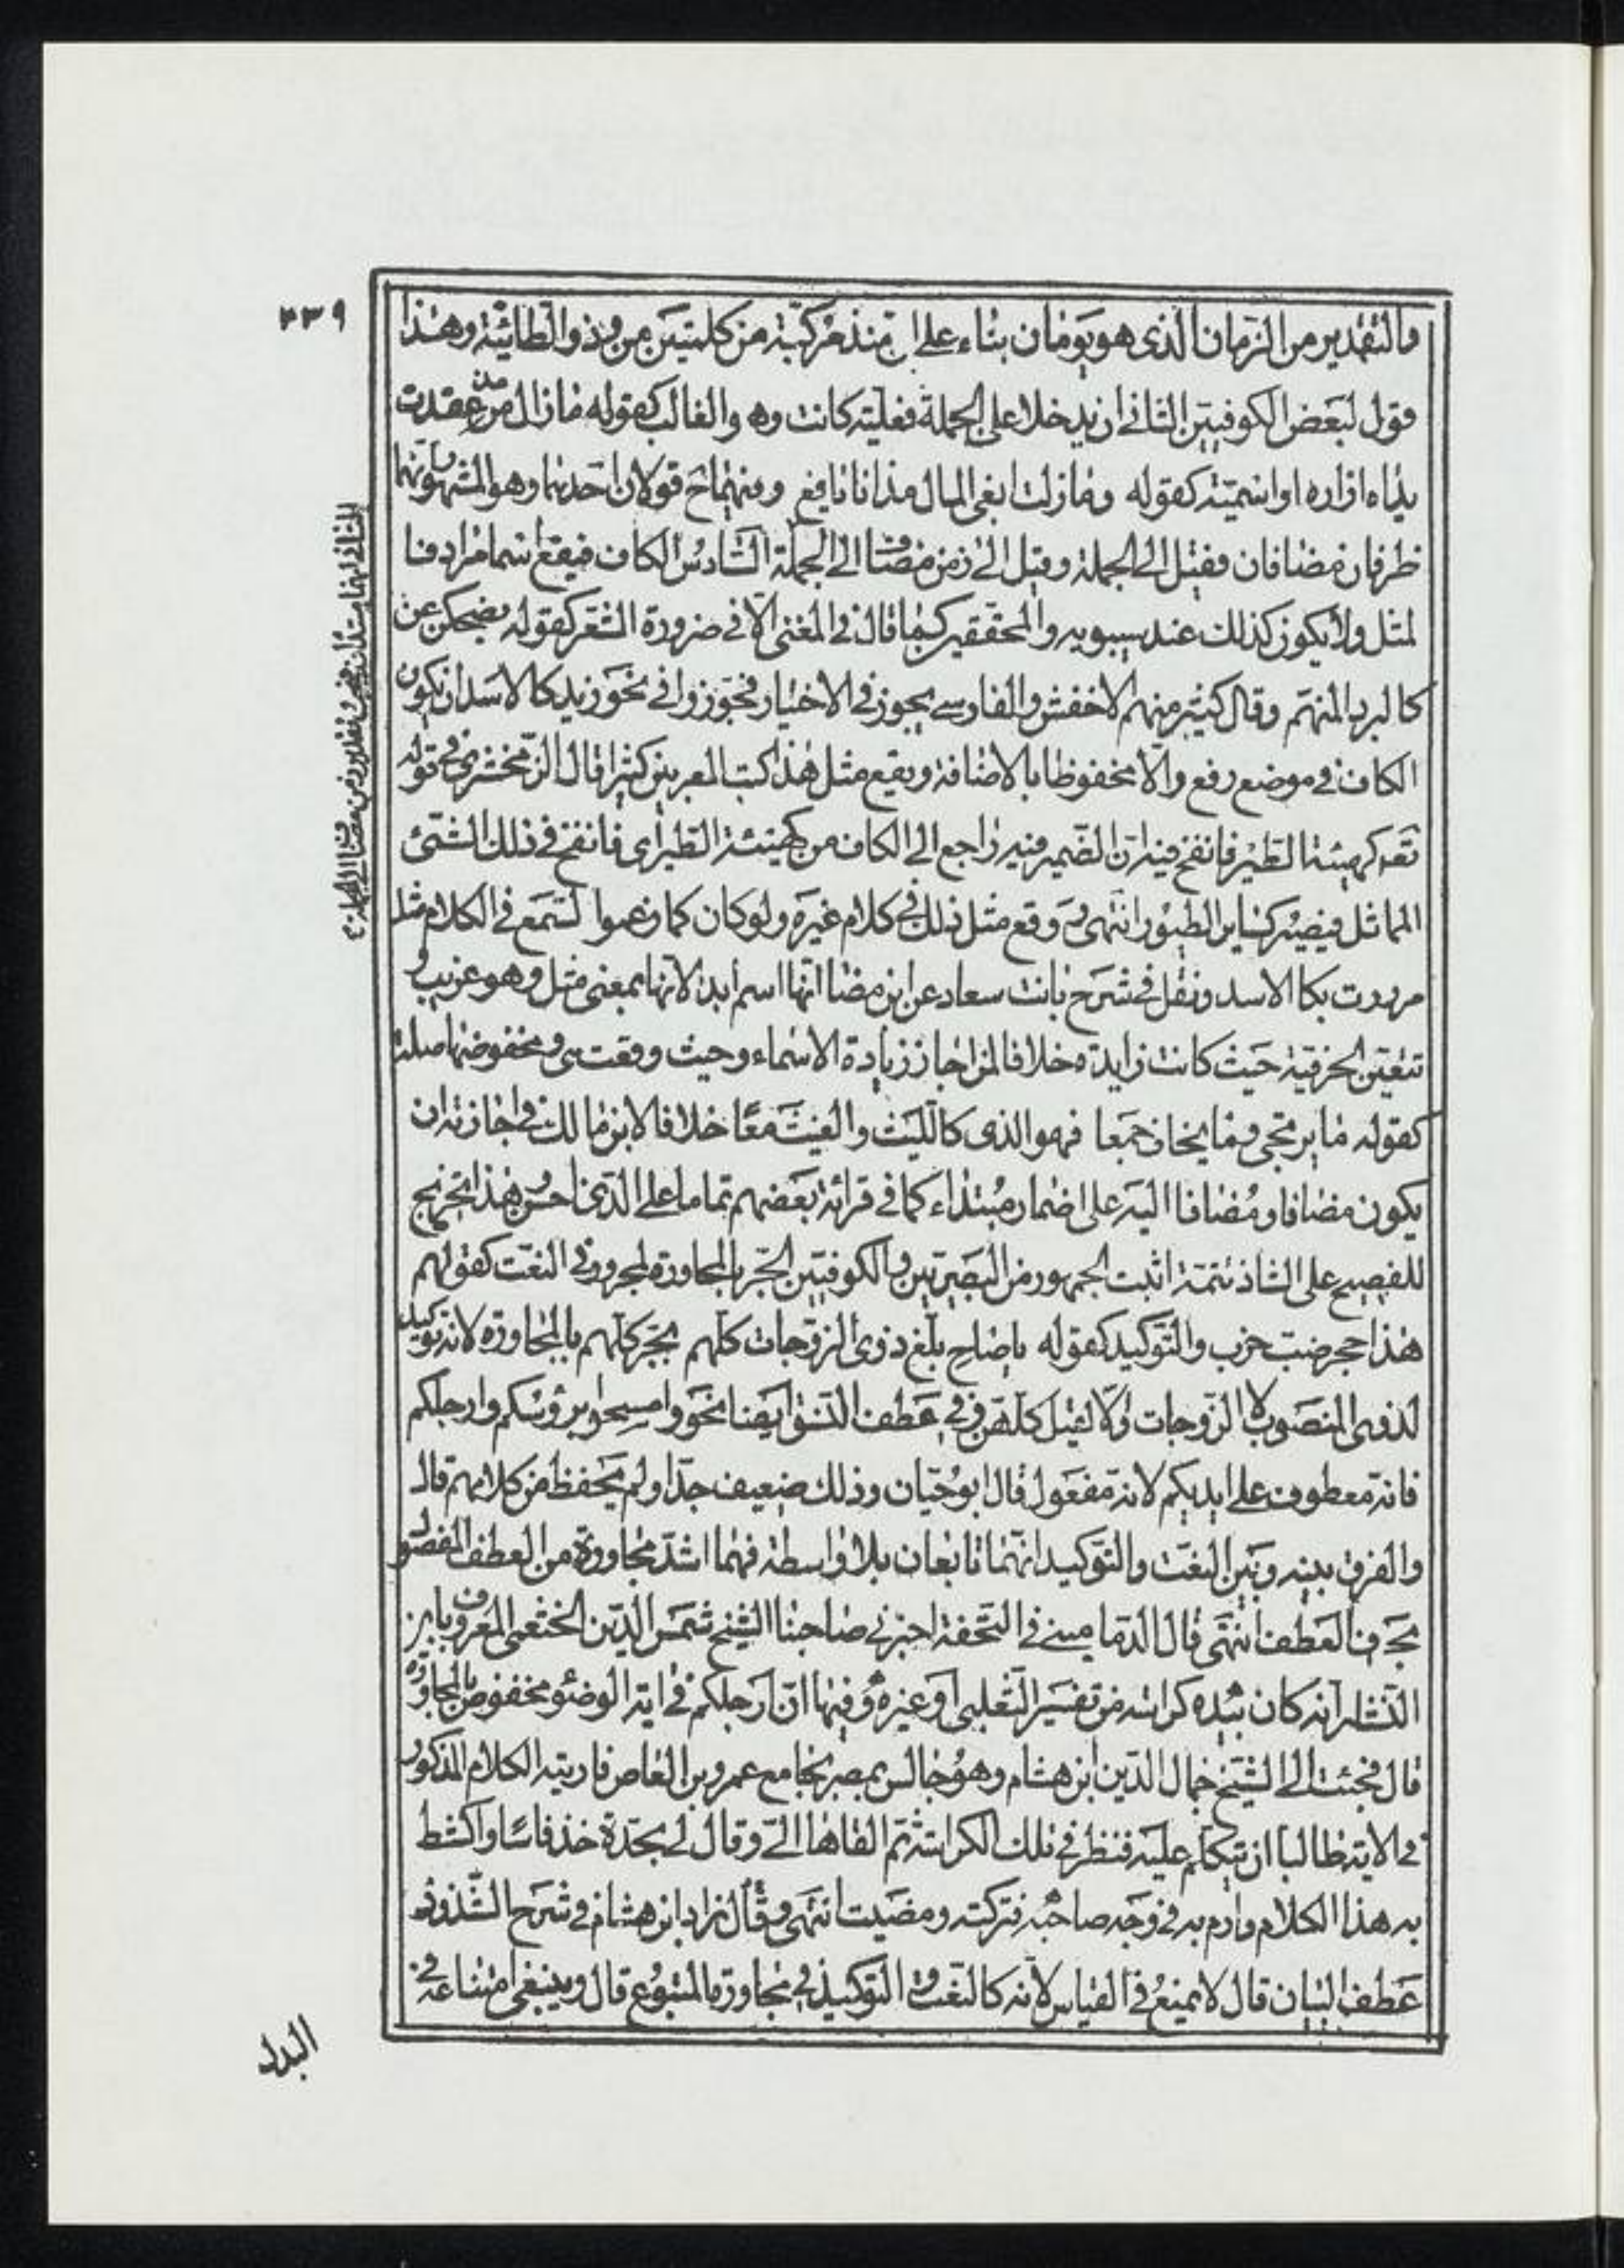 ٣٣٩
والتقدير من الزمان الذى هو يومان بناء على ان منذ مركبة من كلمتين من وذو الطائية وهذا
قول لبعض الكوفيين الثانى ان يدخلا على الجملة فعلية كانت وهو الغالب كقوله مازال مذ عقدت
يداه ازاره او اسمية كقوله ومازلت ابغى المال مذ انا يافع وفيهما ح قولان احدهما وهو المشهور انهما
ظرفان مضافان فقيل الى الجملة وقيل الى زمن مضاف الى الجملة السادس الكاف فيقع اسما مرادفا
لمثل ولا يكون كذلك عند سيبويه والمحققين كما قال فى المغنى الا فى ضرورة الشعر كقوله يضحكن عن
كالبرد المنهم وقال كثير منهم الاخفش والفارسى يجوز فى الاختيار فجوزوا فى نحو زيد كالاسد ان يكون
الكاف فى موضع رفع والاسد مخفوظا بالاضافة ويقع مثل هذا كتب المعربين كثيرا قال الزمخشرى فى قوله
تعه كهيئة الطير فانفخ فيه ان الضمير فيه راجع الى الكاف من كهيئة الطير اى فانفخ فى ذلك الشئ
المماثل فيصير كساير الطيور انتهى ووقع مثل ذلك فى كلام غيره ولو كان كما زعموا لسمع فى الكلام مثل
مررت بكا الاسد ونقل فى شرح بانت سعاد عن ابن مضا انها اسم ابدا لانها بمعنى مثل وهو غريب و
تتعين الحرفية حيث كانت زايدة خلافا لمن اجاز زيادة الاسماء وحيث وقعت هى ومخفوضها صلة
كقوله ما يرتجى وما يخاف جمعا فهو الذى كالليث والغيث معا خلافا لابن مالك فى اجازته ان
يكون مضافا ومضافا اليه على اضمار مبتداء كما فى قرائة بعضهم تماما على الذى احسن وهذا تخريج
للفصيح على الشاذ تتمة اثبت الجمهور من البصريين والكوفيين الجر بالمجاورة للمجرور فى النعت كقولهم
هذا حجر ضب خرب والتوكيد كقوله ياصاح بلغ ذوى الزوجات كلهم بجر كلهم بالمجاورة لانه توكيد
لذوى المنصوب لا الزوجات والا لقيل كلهن وفى عطف النسق ايضا نحو وامسحوا برؤسكم وارجلكم
فانه معطوف على ايديكم لانه مفعول قال ابو حيان وذلك ضعيف جدا ولم يحفظ من كلامهم قال
والفرق بينه وبين النعت والتوكيد انهما تابعان بلا واسطة فهما اشد مجاورة من العطف المفصول
بحرف العطف انتهى قال الدمامينى فى التحفة اخبرنى صاحبنا الشيخ شمس الدين الخثعمى المعروف بابن
النشار انه كان بيده كراسة من تفسير الثعلبى او غيره وفيها ان ارجلكم فى اية الوضؤ مخفوض بالمجاورة
قال فجئت الى الشيخ جمال الدين ابن هشام وهو جالس بمصر بجامع عمرو بن العاص فاريته الكلام المذكور
فى الاية طالبا ان يتكلم عليه فنظر فى تلك الكراسة ثم القاها الى وقال لى بحدة خذ فاسا واكشط
به هذا الكلام وارم به فى وجه صاحبه فتركته ومضيت انتهى وقال زاد ابن هشام فى شرح الشذور
عطف البيان قال لا يمتنع فى القياس لانه كالنعت والتوكيد فى مجاورة المتبوع قال وينبغى امتناعه فى
البدل